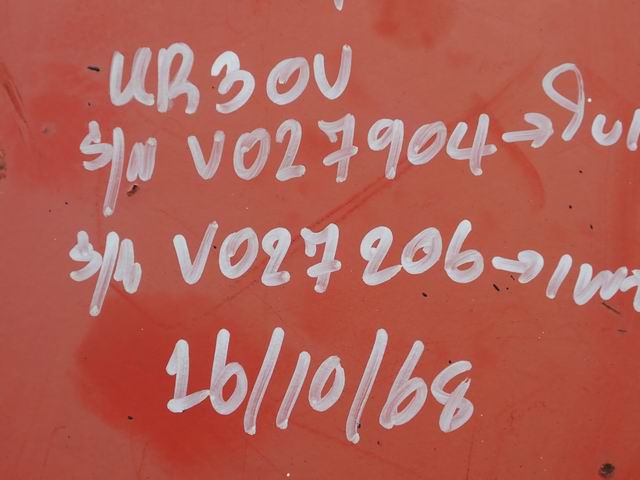 UR30V
S/N V027904→
S/N V027206→
16/10/68